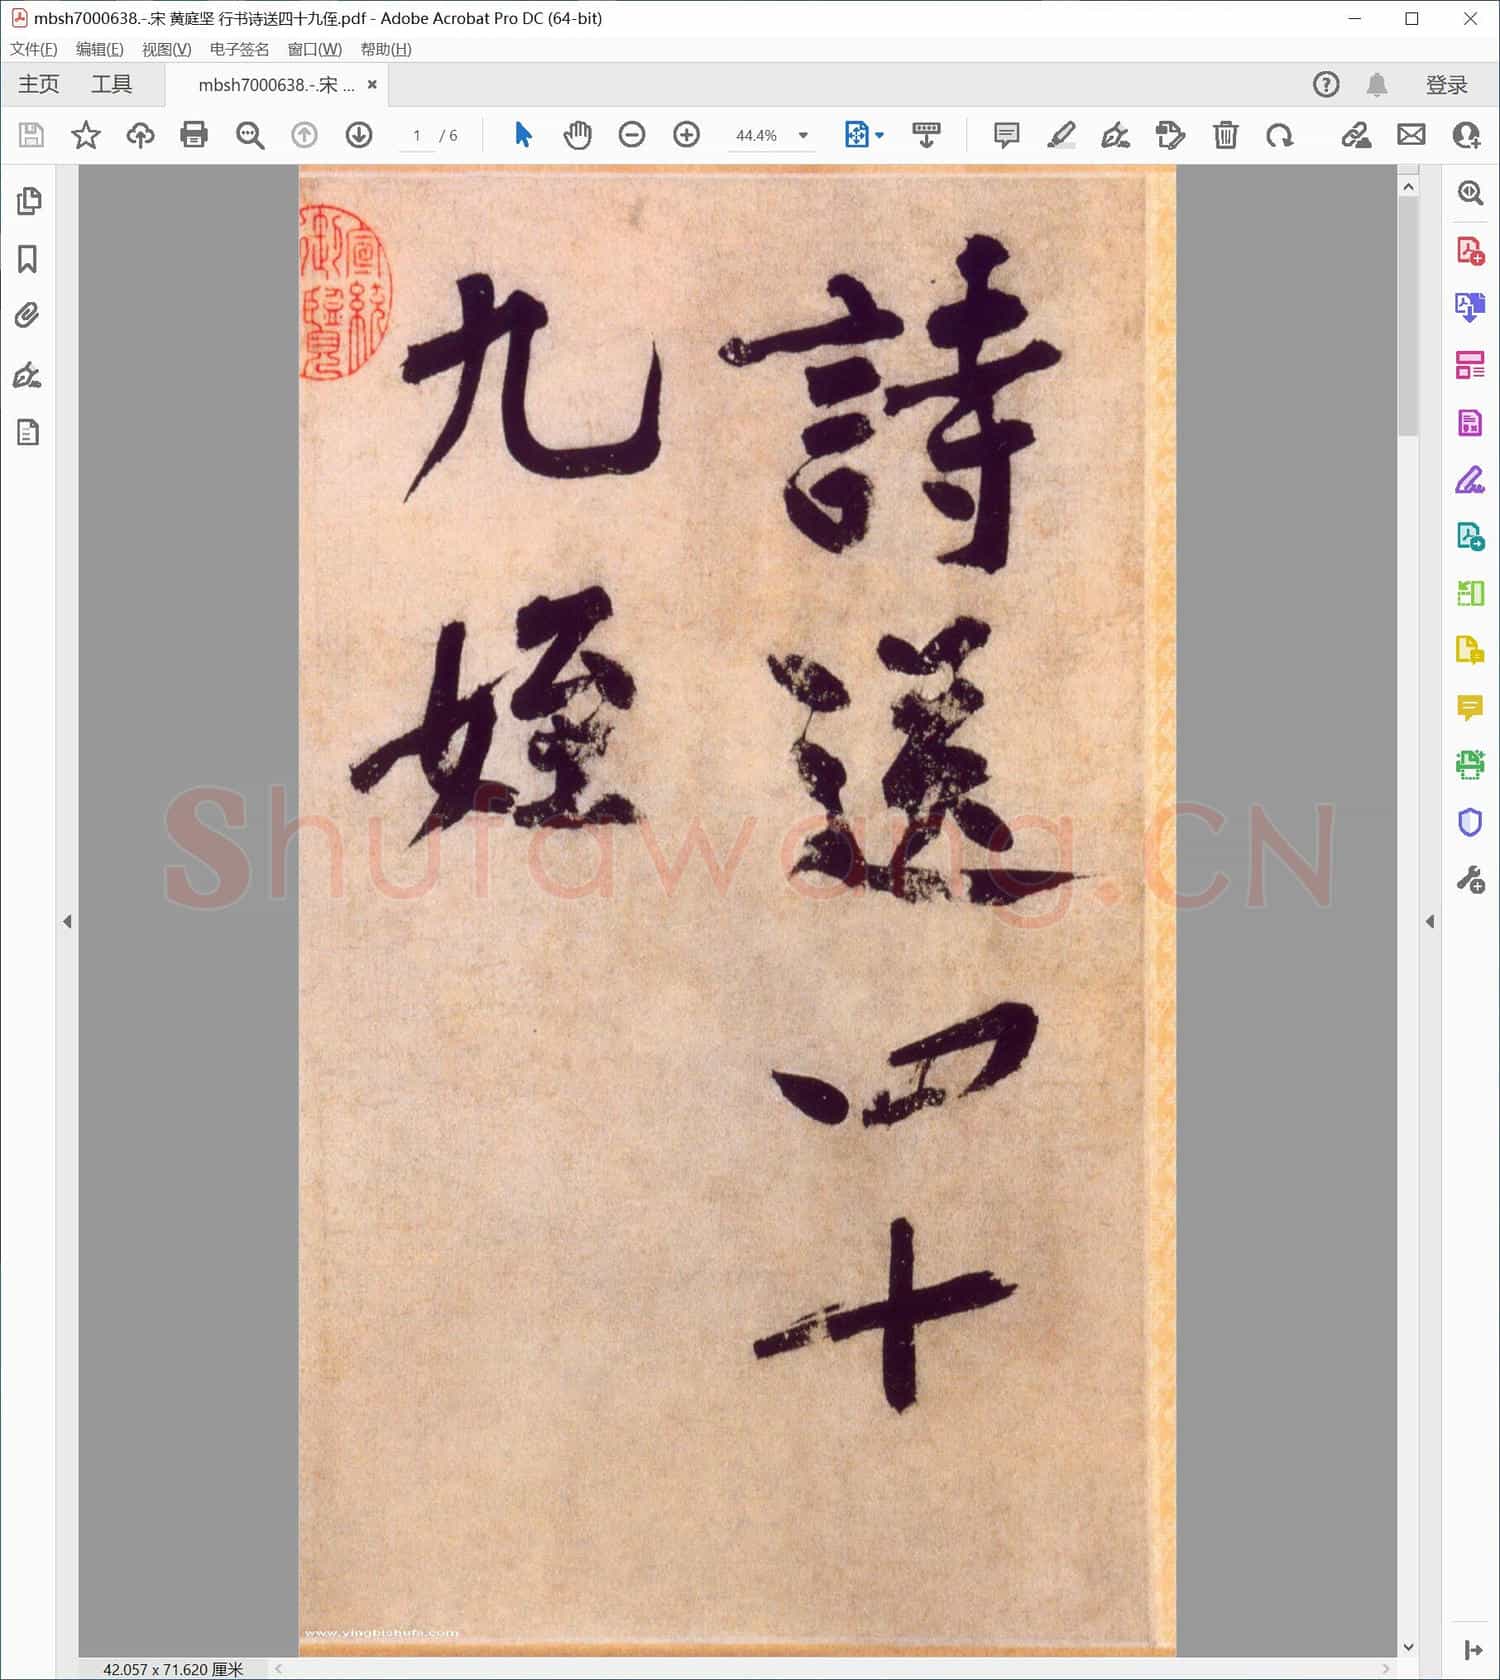 mbsh7000638.-.宋 黄庭坚 行书诗送四十九侄.pdf - Adobe Acrobat Pro DC (64-bit)
文件(F) 编辑(E) 视图(V) 电子签名 窗口(W) 帮助(H)
主页 工具 mbsh7000638.-.宋 ... 登录
1 / 6 44.4%
詩送四十
九姪
宣統御覽
Shufawang.CN
www.yingbishufa.com
42.057 x 71.620 厘米